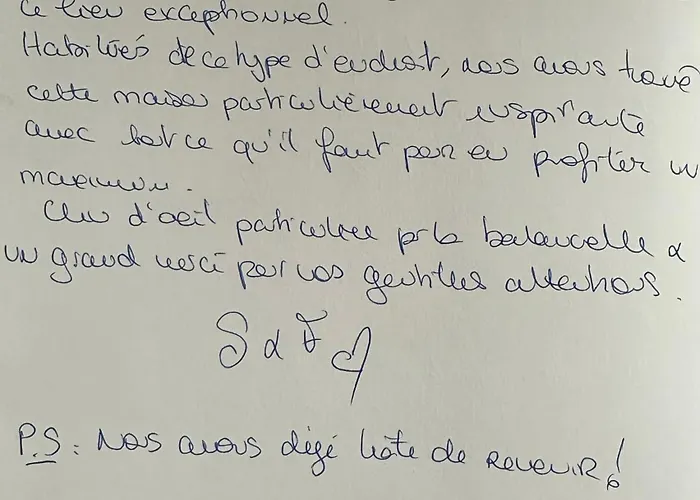 ce lieu exceptionnel.
Habitués de ce type d'endroit, nous avons trouvé
cette maison particulièrement inspirante
avec tout ce qu'il faut pour en profiter un
maximum.
Clin d'oeil particulier pr la balancelle &
un grand merci pour vos gentilles attentions.
S & F
P.S : Nous avons déjà hâte de revenir !